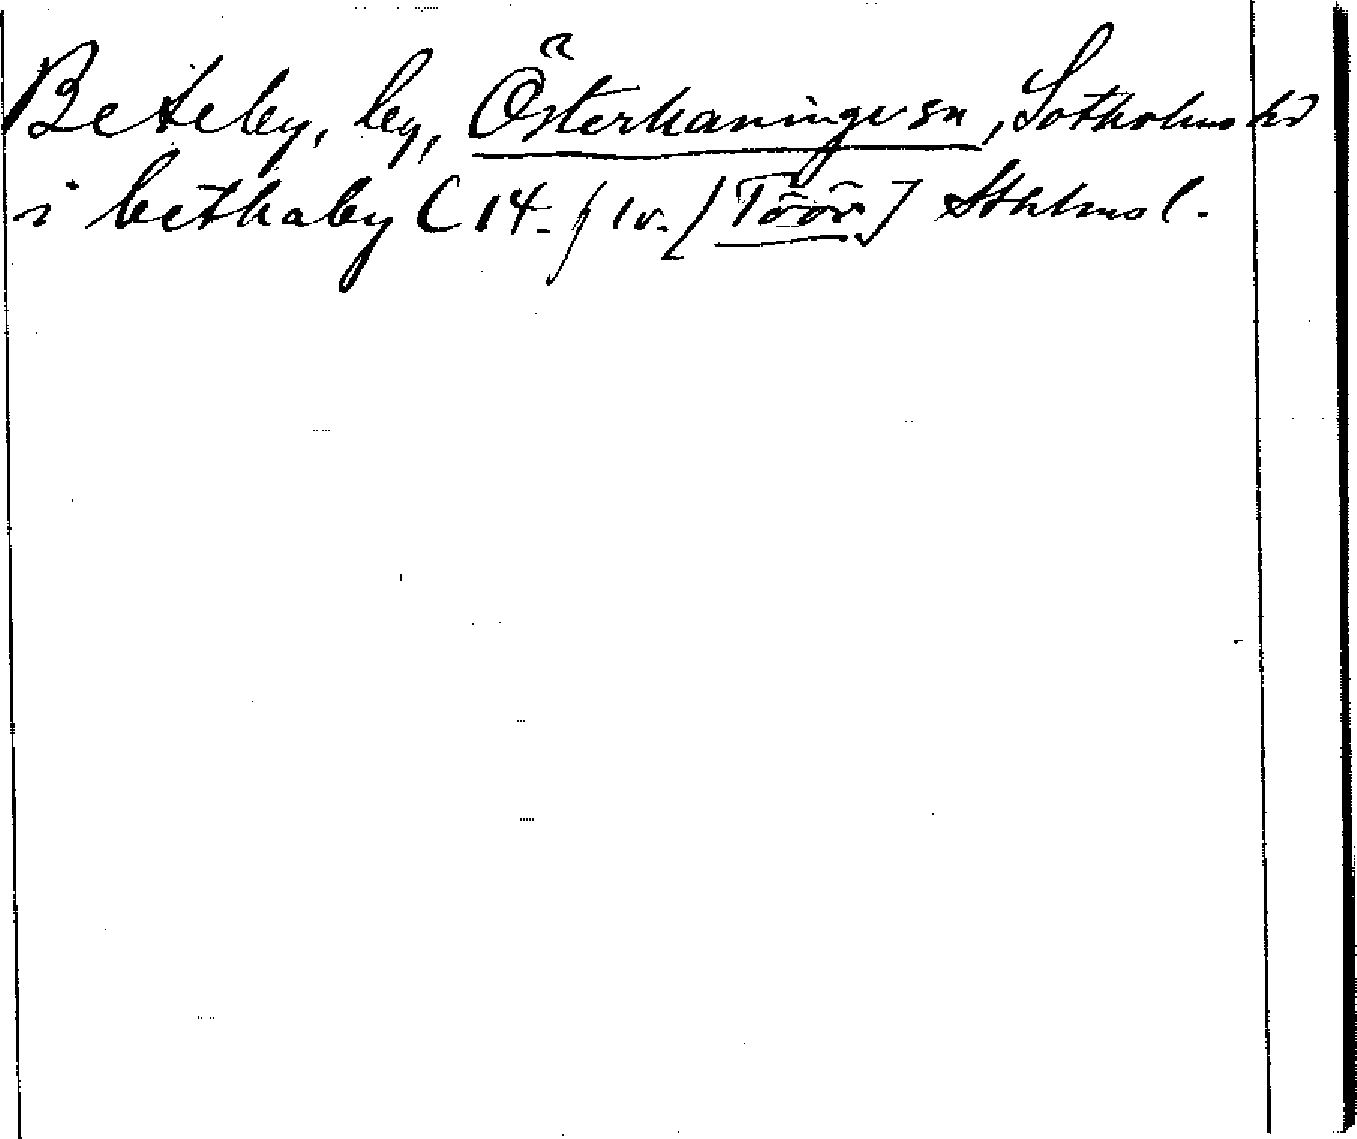 Beteby, by, Österhaninge sn, Sotholms hd
i bethaby (14. / Töör] Sthlms l.